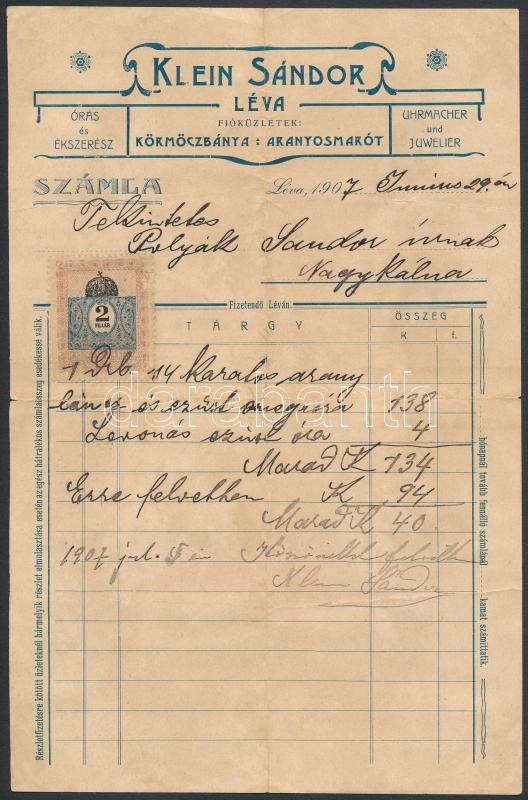 KLEIN SÁNDOR
LÉVA
FIÓKÜZLETEK:
KÖRMÖCZBÁNYA : ARANYOSMARÓT
ÓRÁS
és
ÉKSZERÉSZ
UHRMACHER
und
JUWELIER
SZÁMLA
Léva, 1907 Junius 29.én
Tekintetes
Polyák Sandor úrnak
Nagykálna
2
FILLÉR
Fizetendő Léván.
TÁRGY
ÖSSZEG
K f.
1 Drb 14 Karatos arany
láncz és ezüst óra 138
Levonás ezüst óra 4
Marad K 134
Erre felvettem K 94
Marad K 40.
1907 jul. 5 én Köszönettel felvettem
Klein Sándor
Részletfizetésre kötött üzleteknél bármelyik részlet elmulasztása esetén az egész hátralékos számlaösszeg esedékessé válik.
hónapnál tovább fennálló számlánál kamat számíttatik.
darabanth